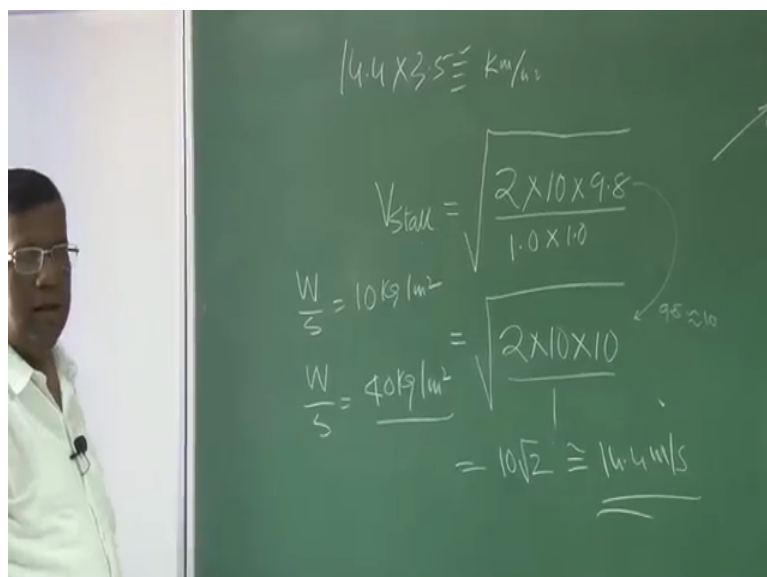 14.4×3.5 ≅ Km/hr
V_Stall = √(2×10×9.8 / 1.0×1.0)
W/S = 10 Kg/m²
= √(2×10×10 / 1)
9.8 ≈ 10
W/S = 40 Kg/m²
= 10√2 ≅ 14.4 m/s